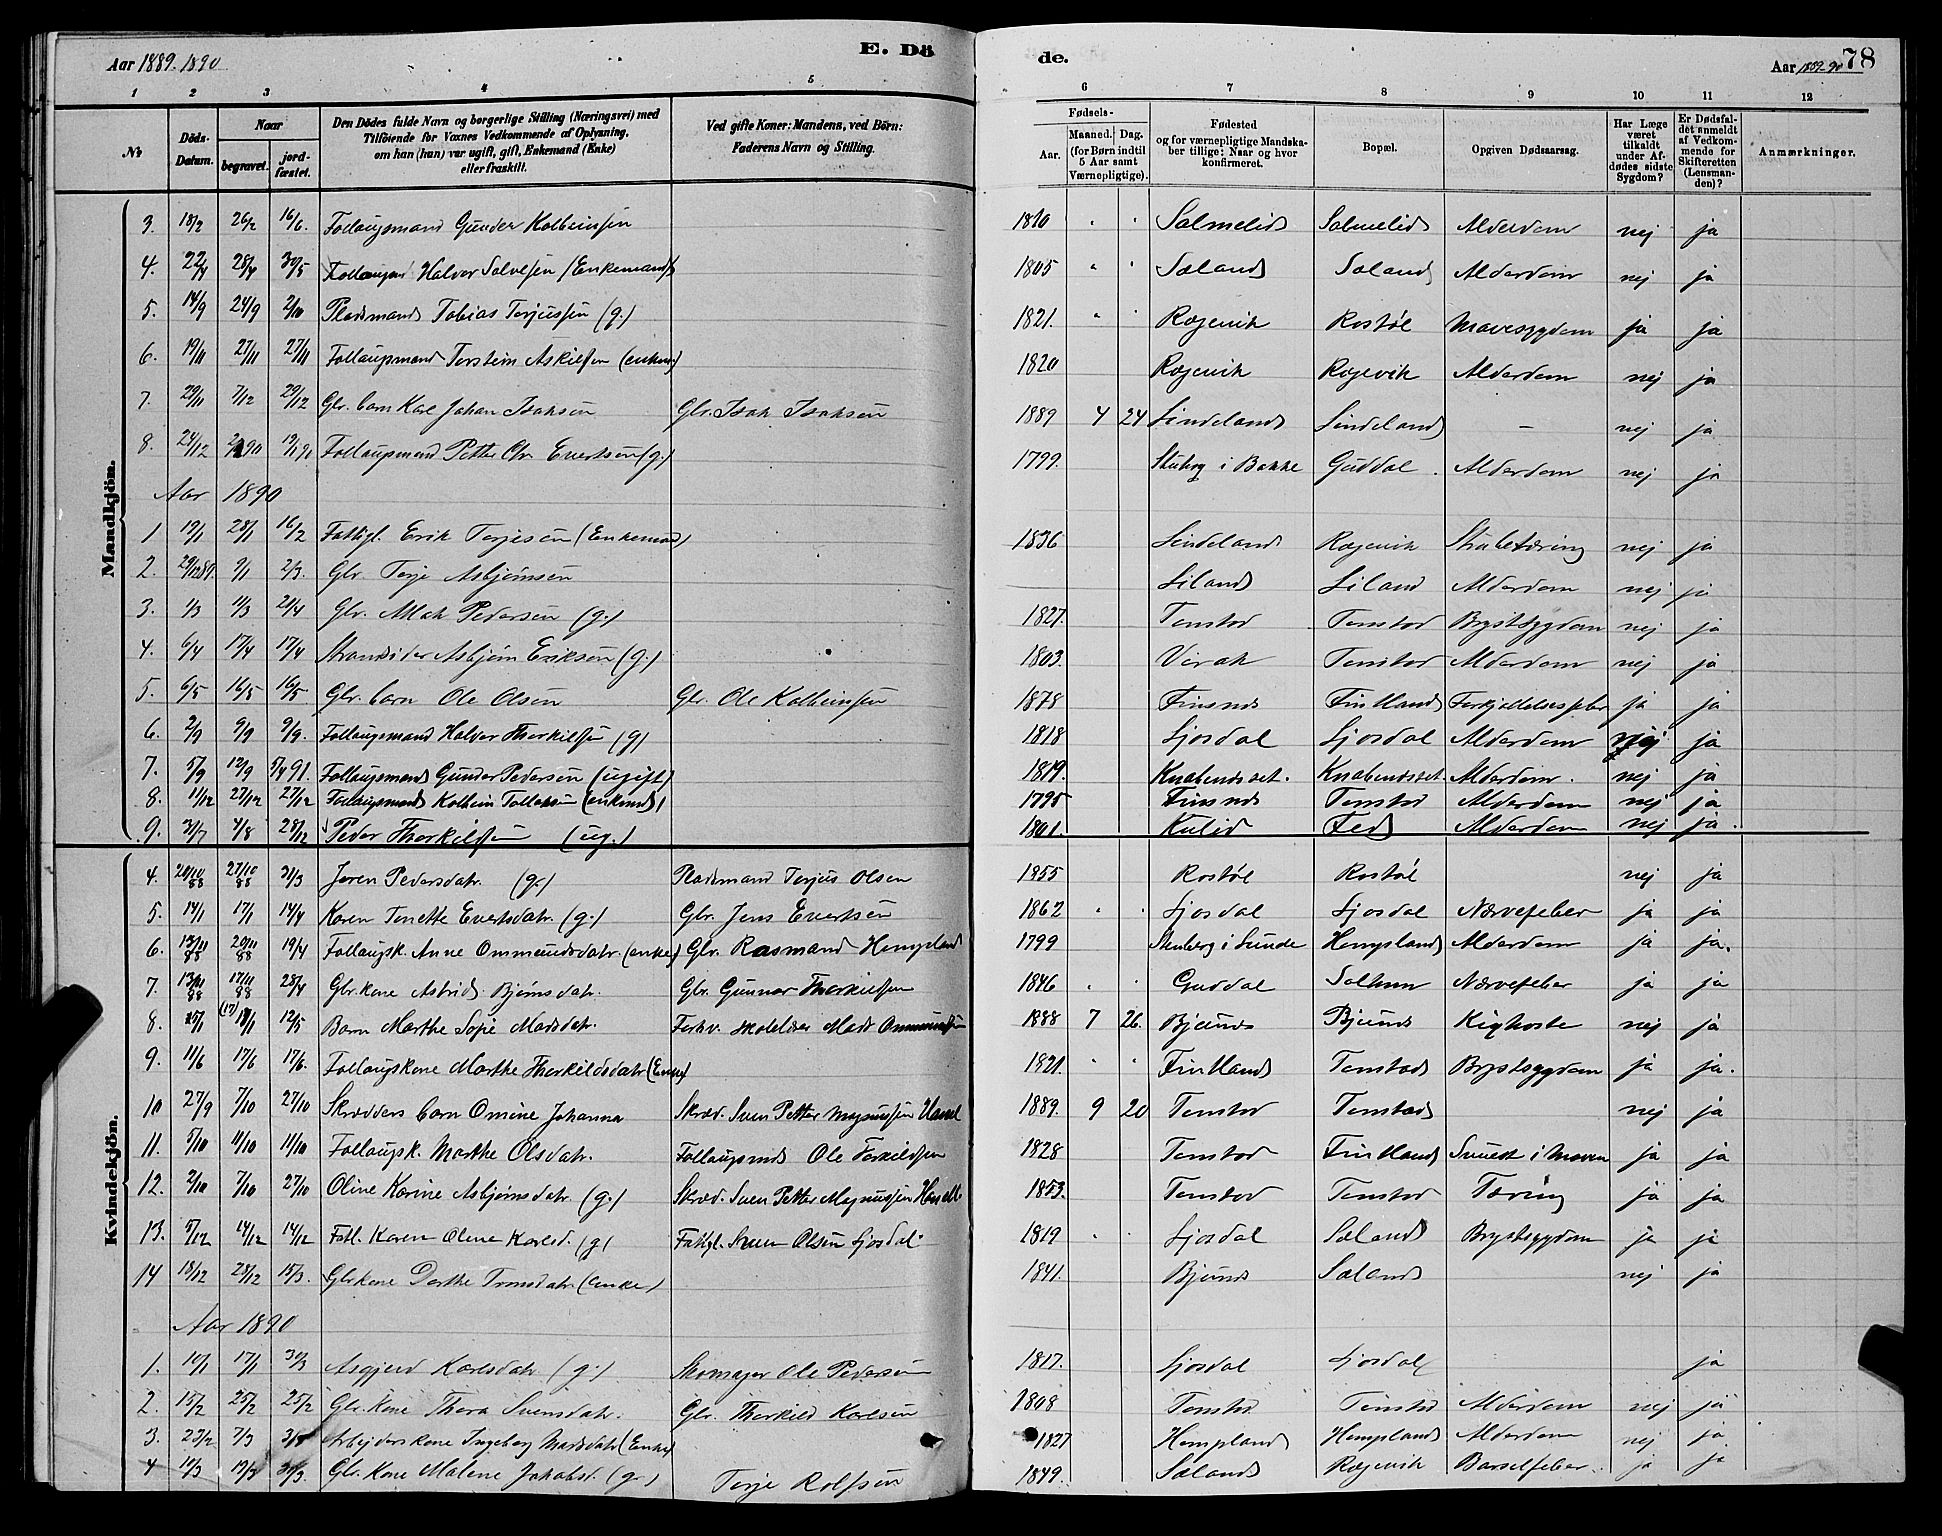 Aar 1889-1890
E. Dö
de.
Aar 1889-90
78
1 2 3 4 5 6 7 8 9 10 11 12
No
Döds-Datum.
Naar
begravet.
jord-fæstet.
Den Dödes fulde Navn og borgerlige Stilling (Næringsvei) med
Tilföiende for Voxnes Vedkommende af Oplysning,
om han (hun) var ugift, gift, Enkemand (Enke)
eller fraskilt.
Ved gifte Koner: Mandens, ved Børn:
Faderens Navn og Stilling.
Fødsels-
Aar.
Maaned. Dag.
(for Børn indtil
5 Aar samt
Værnepligtige).
Fødested
og for værnepligtige Mandska-
ber tillige: Naar og hvor
konfirmeret.
Bopæl.
Opgiven Dødsaarsag.
Har Læge
været
tilkaldt
under Af-
dødes sidste
Sygdom?
Er Dødsfal-
det anmeldt
af Vedkom-
mende for
Skifteretten
(Lensman-
den)?
Anmærkninger.
Mandkjön.
3. 18/2 26/2 16/6. Follaugsmand Gunder Kolbeinsen 1810 Salmelid Salmelid Alderdom nej ja
4. 22/4 28/4 30/5 Follaugsm Halvor Salvesen (Enkemand) 1805 Sæland Sæland Alderdom nej ja
5. 14/9 24/9 2/10 Pladsmand Tobias Terjussen (g.) 1821. Rægevik Rostøl Mavesygdom ja ja
6. 19/11 27/11 27/11 Follaugsmand Torstein Askildsen (enkem) 1820 Rægevik Rægevik Alderdom nej ja
7. 29/11 7/12 29/12 Gbr. barn Karl Johan Isaksen Gbr. Isak Isaksen 1889 4 24 Lindeland Lindeland - nej ja
8. 24/12 90 19/1 90 Follaugsmand Petter Chr. Evertsen (g.) 1799. i Bakke Guddal. Alderdom nej ja
Aar 1890
1 19/1 28/1 16/2 Fattigl. Erik Terjesen (Enkemand) 1836 Lindeland Rægevik Strubetæring nej ja
2. 29/12 89. 9/1 2/3. Gbr. Terje Asbjørnsen Liland Liland Alderdom nej ja
3. 1/3 11/3 21/4 Gbr. Mak Pedersen (g.) 1827. Tonstad Tonstad Brystsygdom nej ja
4. 6/4 17/4 17/4 Strandsider Asbjørn Eriksen (g.) 1803. Virak Tonstad Alderdom nej ja
5. 6/5 16/5 16/5. Gbr. barn Ole Olsen Gbr. Ole Kolbeinsen 1878 Finsnes Fintland Forkjølelsesfeber ja ja
6. 2/9 9/9 9/9. Follaugsmand Halvor Therkildsen (g) 1818 Ljosdal Ljosdal Alderdom nej ja
7. 5/9 12/9 5/4 91. Follaugsmand Gunder Pedersen (ugift) 1819. Knabendsset. Knabendsset. Alderdom. nej ja
8. 11/12 27/12 27/12 Follaugsmand Kolbein Tollaksen (enkmd) 1795 Finsnes Tonstad Alderdom nej ja
9. 31/7 4/8 28/12 Peder Therkildsen (ug.) 1801. Kulid Fed Alderdom nej ja.
Kvindekjön.
4. 20/10 88 27/10 88 31/3 Jøren Pedersdatr. (g.) Pladsmand Terjus Olsen 1855 Rostøl Rostøl nej ja
5. 14/1 17/1 14/4 Karen Tonette Evertsdatr. (g.) Gbr. Jens Evertsen 1862 Ljosdal Ljosdal Nervefeber ja ja
6. 13/11 88 20/11 88 19/4 Follaugsk. Anne Ommundsdatr. (enke) Gbr. Rasmand Hompland 1799 Stenberg i Lunde Hompland Alderdom ja ja.
7. 13/11 88 17/11 88 28/4 Gbr. kone Astrid Bjørnsdatr. Gbr. Gunnar Therkildsen 1846 Guddal Solhum Nervefeber ja ja
8. 15/1 (17) 17/1 12/5 Barn Marthe Sofie Madsdatr. Forhv. skolelær Mads Ommundsen 1888 7 26. Bjunes Bjunes Kighoste nej ja
9. 11/6 17/6 17/6. Follaugskone Marthe Therkildsdatr (Enke) 1821. Fintland Tonstad Brystsygdom ja ja.
10 27/9 7/10 27/10 Skrædders barn Omine Johanna Skræd. Sven Petter Magnussen 1889. 9 20 Tonstad Tonstad nej ja
11. 5/10 11/10 11/10 Follaugsk. Marthe Olsdatr. Follaugsmd Ole Terkildsen 1828 Tonstad Fintland i Maven ja ja
12. 2/10 7/10 27/10 Oline Karine Asbjørnsdatr. (g.) Skræd. Sven Petter Magnussen 1853. Tonstad Tonstad Tæring ja ja
13. 5/12 14/12 14/12 Fatl. Karen Olene Karlsd. (g) Fattgl. Sven Olsen Ljosdal. 1819 Ljosdal Sæland Brystsygdom ja ja
14 18/12 28/12 15/3. Gbrkone Dorthe Tronsdatr. (enke) 1841. Bjunes Sæland nej ja
Aar 1890
1. 10/1 17/1 30/3 Asgjerd Karlsdatr (g.) Skomager Ole Pedersen 1817. Ljosdal Ljosdal ja
2. 15/2 25/2 25/2 Gbr. Kone Thora Svensdatr. Gbr. Therkild Karlsen 1808 Tonstad Tonstad Alderdom nej ja
3. 23/2 7/3 Arbejderskone Ingeborg Madsdatr (Enke) 1827 Hompland Hompland Alderdom nej ja
4 10/3 19/3 30/3. Gbr. Kone Malene Jakobsd. (g.) Terje Rolfsen 1849. Sæland Rægevik Barselfeber. ja ja